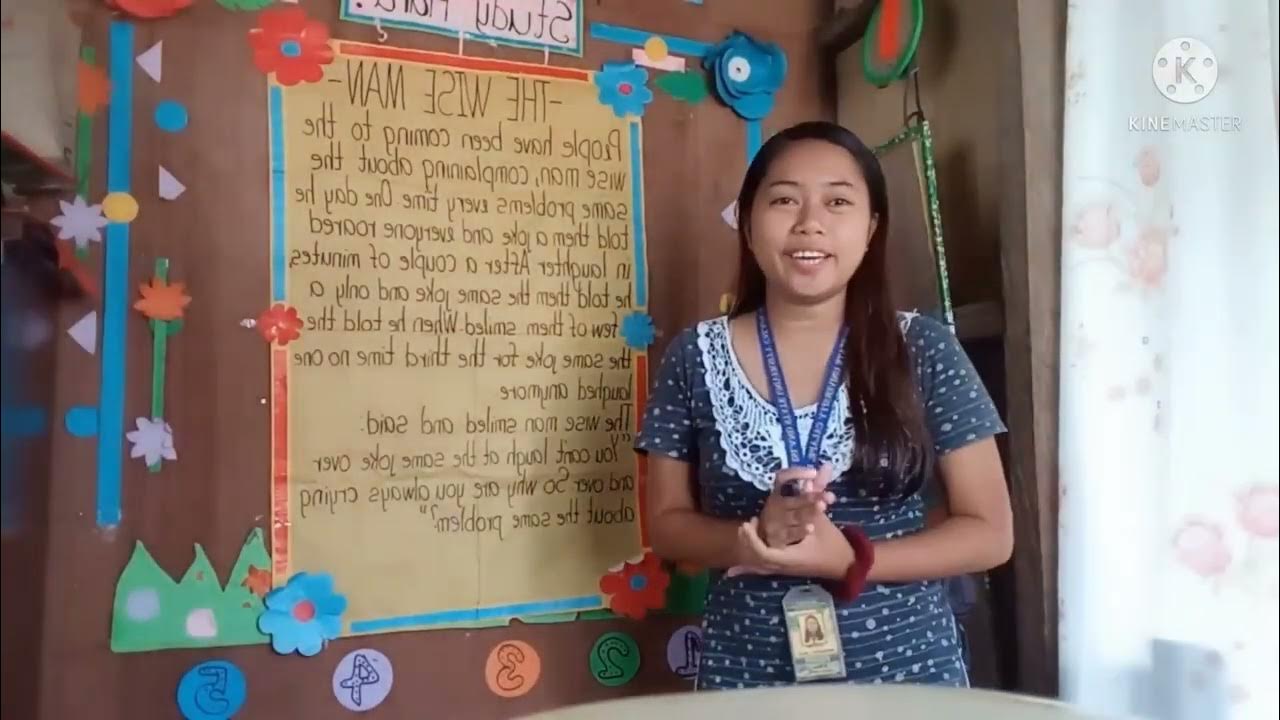 Study Hard!
-THE WISE MAN-
People have been coming to the
wise man, complaining about the
same problems every time One day he
told them a joke and everyone roared
in laughter After a couple of minutes,
he told them the same joke and only a
few of them smiled. When he told the
the same joke for the third time no one
laughed anymore
The wise man smiled and said.
"You can't laugh at the same joke over
and over So why are you always crying
about the same problem?"
5 4 3 2 1
KINEMASTER